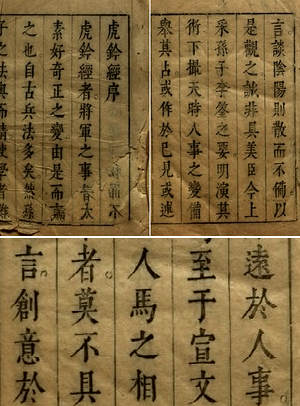 虎鈐經序
虎鈐經者將軍之事
素好奇正之變由是而
之也自古兵法多矣然
子之法奧而精使學者難
言談陰陽則散而不備以
是觀之誠非具美臣今上
采孫子李筌之要明演其
術下撮天時人事之變備
舉其占或作於己見或述
遠於人事
至于宣文
人馬之相
者莫不具
言創意於